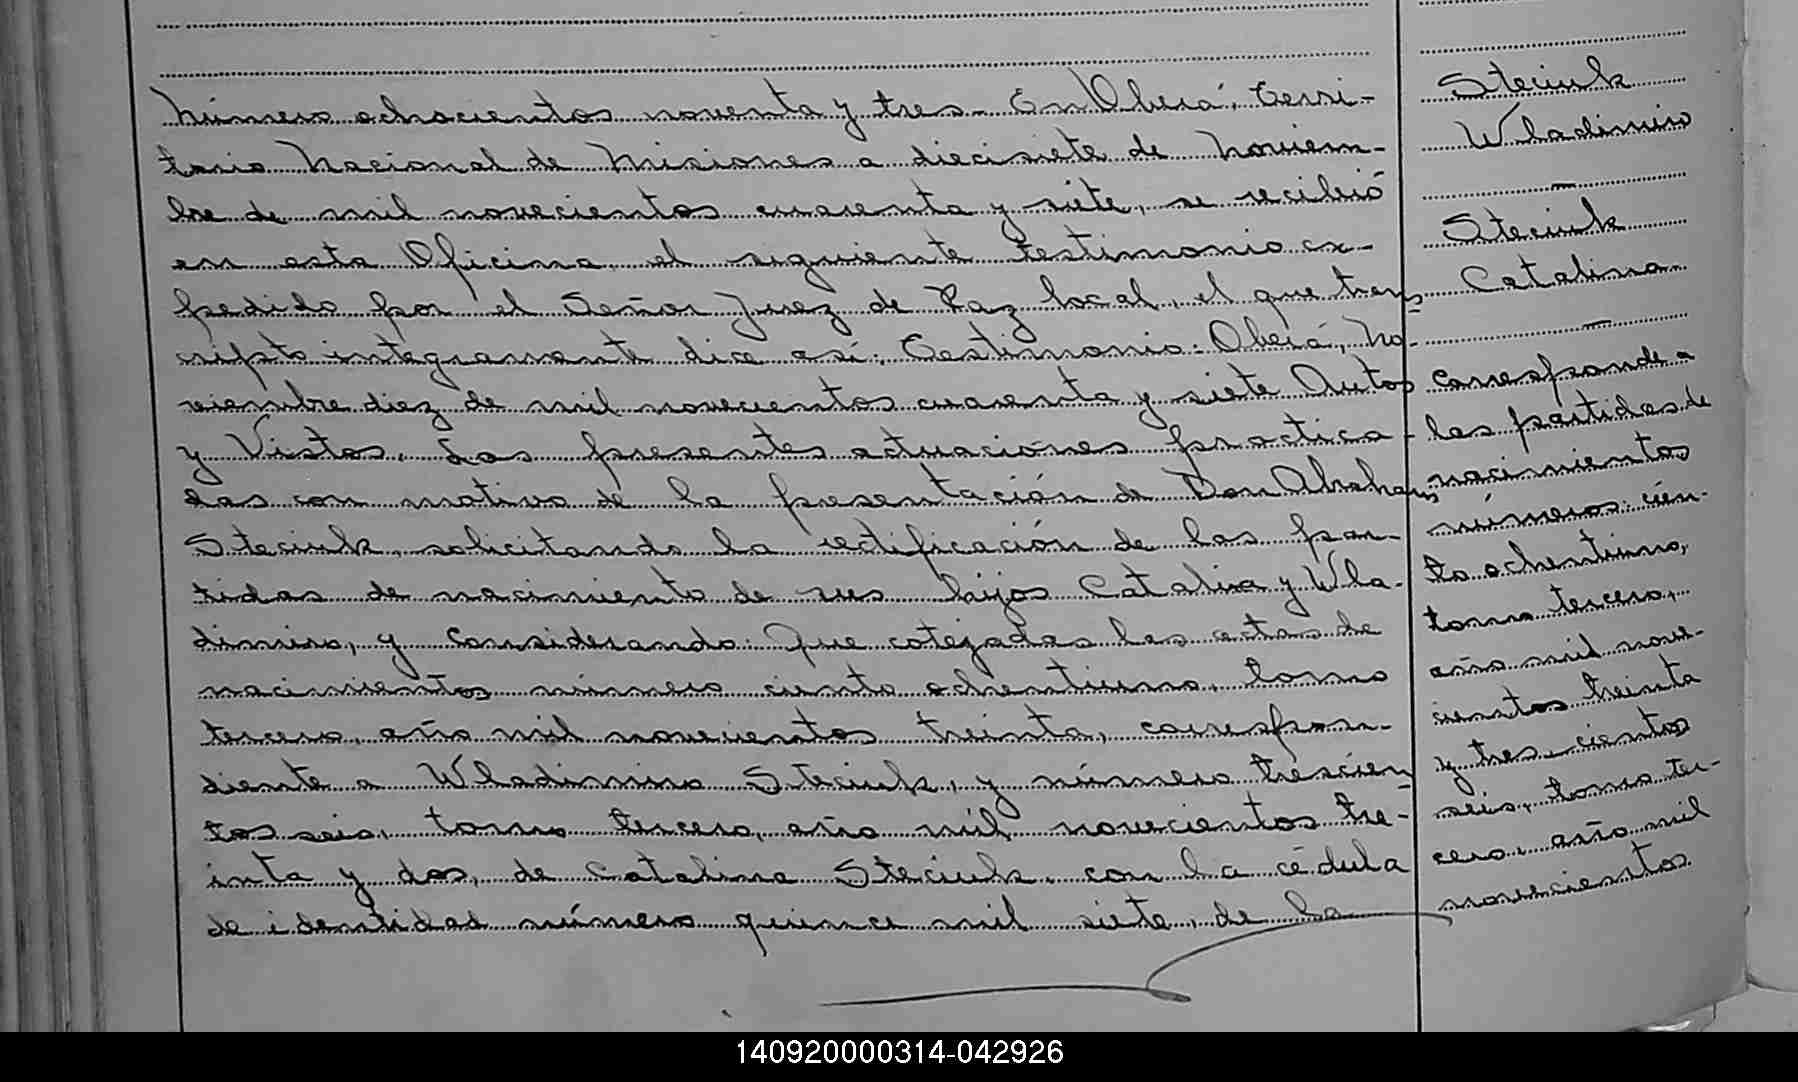 Número ochocientos noventa y tres. En Oberá, Terri-
torio Nacional de Misiones a diecisiete de Noviem-
bre de mil novecientos cuarenta y siete, se recibió
en esta Oficina el siguiente testimonio ex-
pedido por el Señor Juez de Paz local, el que trans-
cripto integramente dice así: Testimonio: Oberá, No-
viembre diez de mil novecientos cuarenta y siete Autos
y Vistos. Las presentes actuaciones practica-
das con motivo de la presentación de Don Abraham
Steciuk, solicitando la rectificación de las par-
tidas de nacimiento de sus hijos Catalina y Wla-
dimiro, y Considerando: Que cotejadas las actas de
nacimientos número ciento ochentiuno, tomo
tercero, año mil novecientos treinta, correspon-
diente a Wladimiro Steciuk, y número trescien-
tos seis, tomo tercero, año mil novecientos tre-
inta y dos, de Catalina Steciuk, con la cédula
de identidad número quince mil siete, de la
Steciuk
Wladimiro
—
Steciuk
Catalina
—
Corresponde a
las partidas de
nacimientos
números: cien-
to ochentiuno,
tomo tercero,
año mil nove-
cientos treinta
y tres cientos
seis, tomo ter-
cero, año mil
novecientos
140920000314-042926